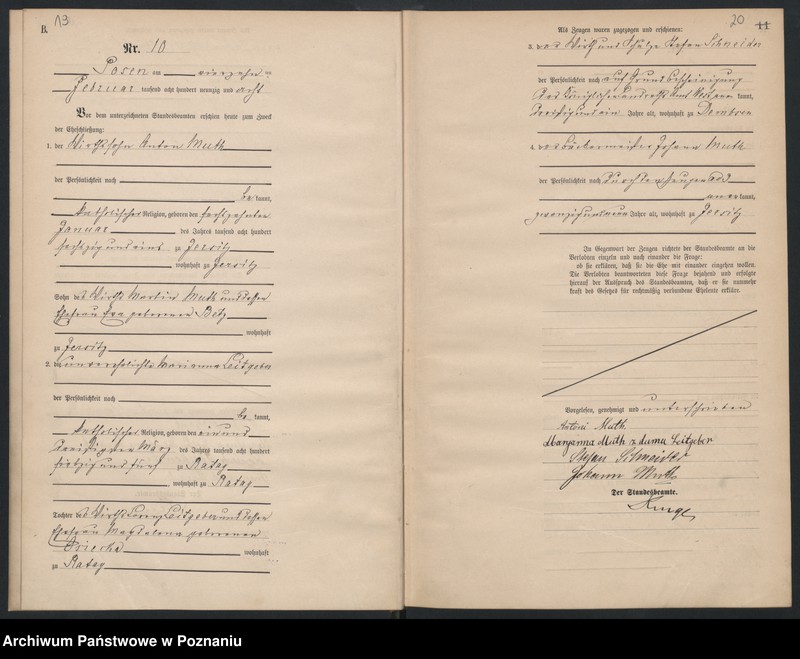 B.
13
Nr. 10
Posen am vierzehn ten
Februar tausend acht hundert neunzig und acht
Vor dem unterzeichneten Standesbeamten erschien heute zum Zweck
der Eheschließung:
1. der Wirthssohn Anton Muth
der Persönlichkeit nach
be kannt,
katholischer Religion, geboren den sechszehnten
Januar des Jahres tausend acht hundert
sechzig und eins zu Jersitz
wohnhaft zu Jersitz
Sohn des Wirths Martin Muth und dessen
Ehefrau Eva geborenen Beitz
wohnhaft
zu Jersitz
2. die unverehelichte Marianna Leitgeber
der Persönlichkeit nach
be kannt,
katholischer Religion, geboren den ein und
dreißigsten März des Jahres tausend acht hundert
siebzig und fünf zu Rataj
, wohnhaft zu Rataj
Tochter des Wirths Lorenz Leitgeber und dessen
Ehefrau Magdalena geborenen
wohnhaft
zu Rataj
20
11
Als Zeugen waren zugezogen und erschienen:
3. der Wirth und Schulze Stefan Schneider
der Persönlichkeit nach auf Grund Bescheinigung
des Königlichen Landraths Amts kannt,
dreißig und ein Jahre alt, wohnhaft zu Dembsen
4. der Bäckermeister Johann Muth
der Persönlichkeit nach durch den Zeugen ad 3
aner kannt,
zwanzig und neun Jahre alt, wohnhaft zu Jersitz
In Gegenwart der Zeugen richtete der Standesbeamte an die
Verlobten einzeln und nach einander die Frage:
ob sie erklären, daß sie die Ehe mit einander eingehen wollen.
Die Verlobten beantworteten diese Frage bejahend und erfolgte
hierauf der Ausspruch des Standesbeamten, daß er sie nunmehr
kraft des Gesetzes für rechtmäßig verbundene Eheleute erkläre.
Vorgelesen, genehmigt und unterschrieben
Antoni Muth
Maryanna Muth z domu Leitgeber
Stefan Schneider
Johann Muth
Der Standesbeamte.
Archiwum Państwowe w Poznaniu